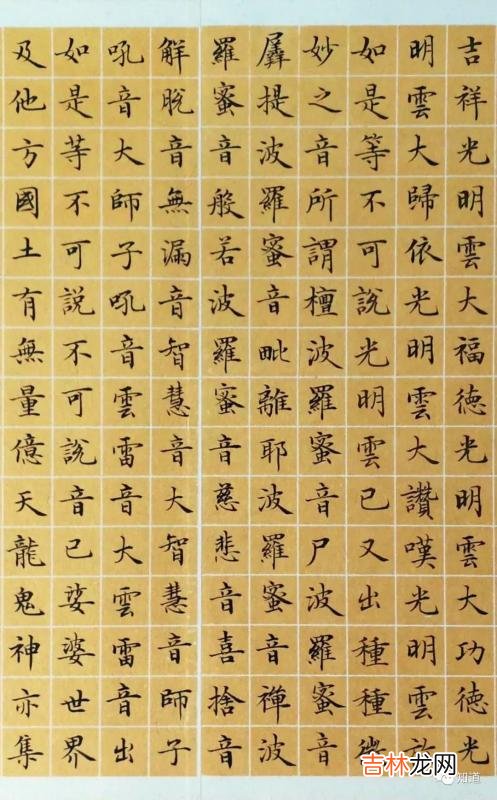 吉祥光明雲大福德光明雲大功德光
明雲大歸依光明雲大讚嘆光明雲放
如是等不可說光明雲已又出種種微
妙之音所謂檀波羅蜜音尸波羅蜜音
羼提波羅蜜音毗離耶波羅蜜音禪波
羅蜜音般若波羅蜜音慈悲音喜捨音
解脫音無漏音智慧音大智慧音師子
吼音大師子吼音雲雷音大雲雷音出
如是等不可說不可說音已娑婆世界
及他方國土有無量億天龍鬼神亦集
知道
吉林龙网